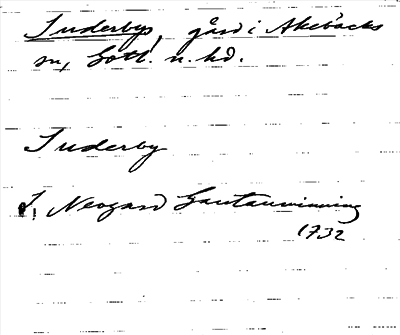 Suderbys, gård i Akebäcks
sn, Gotl. n. hd.
Suderby
J. Neogard Gautauminning
1732